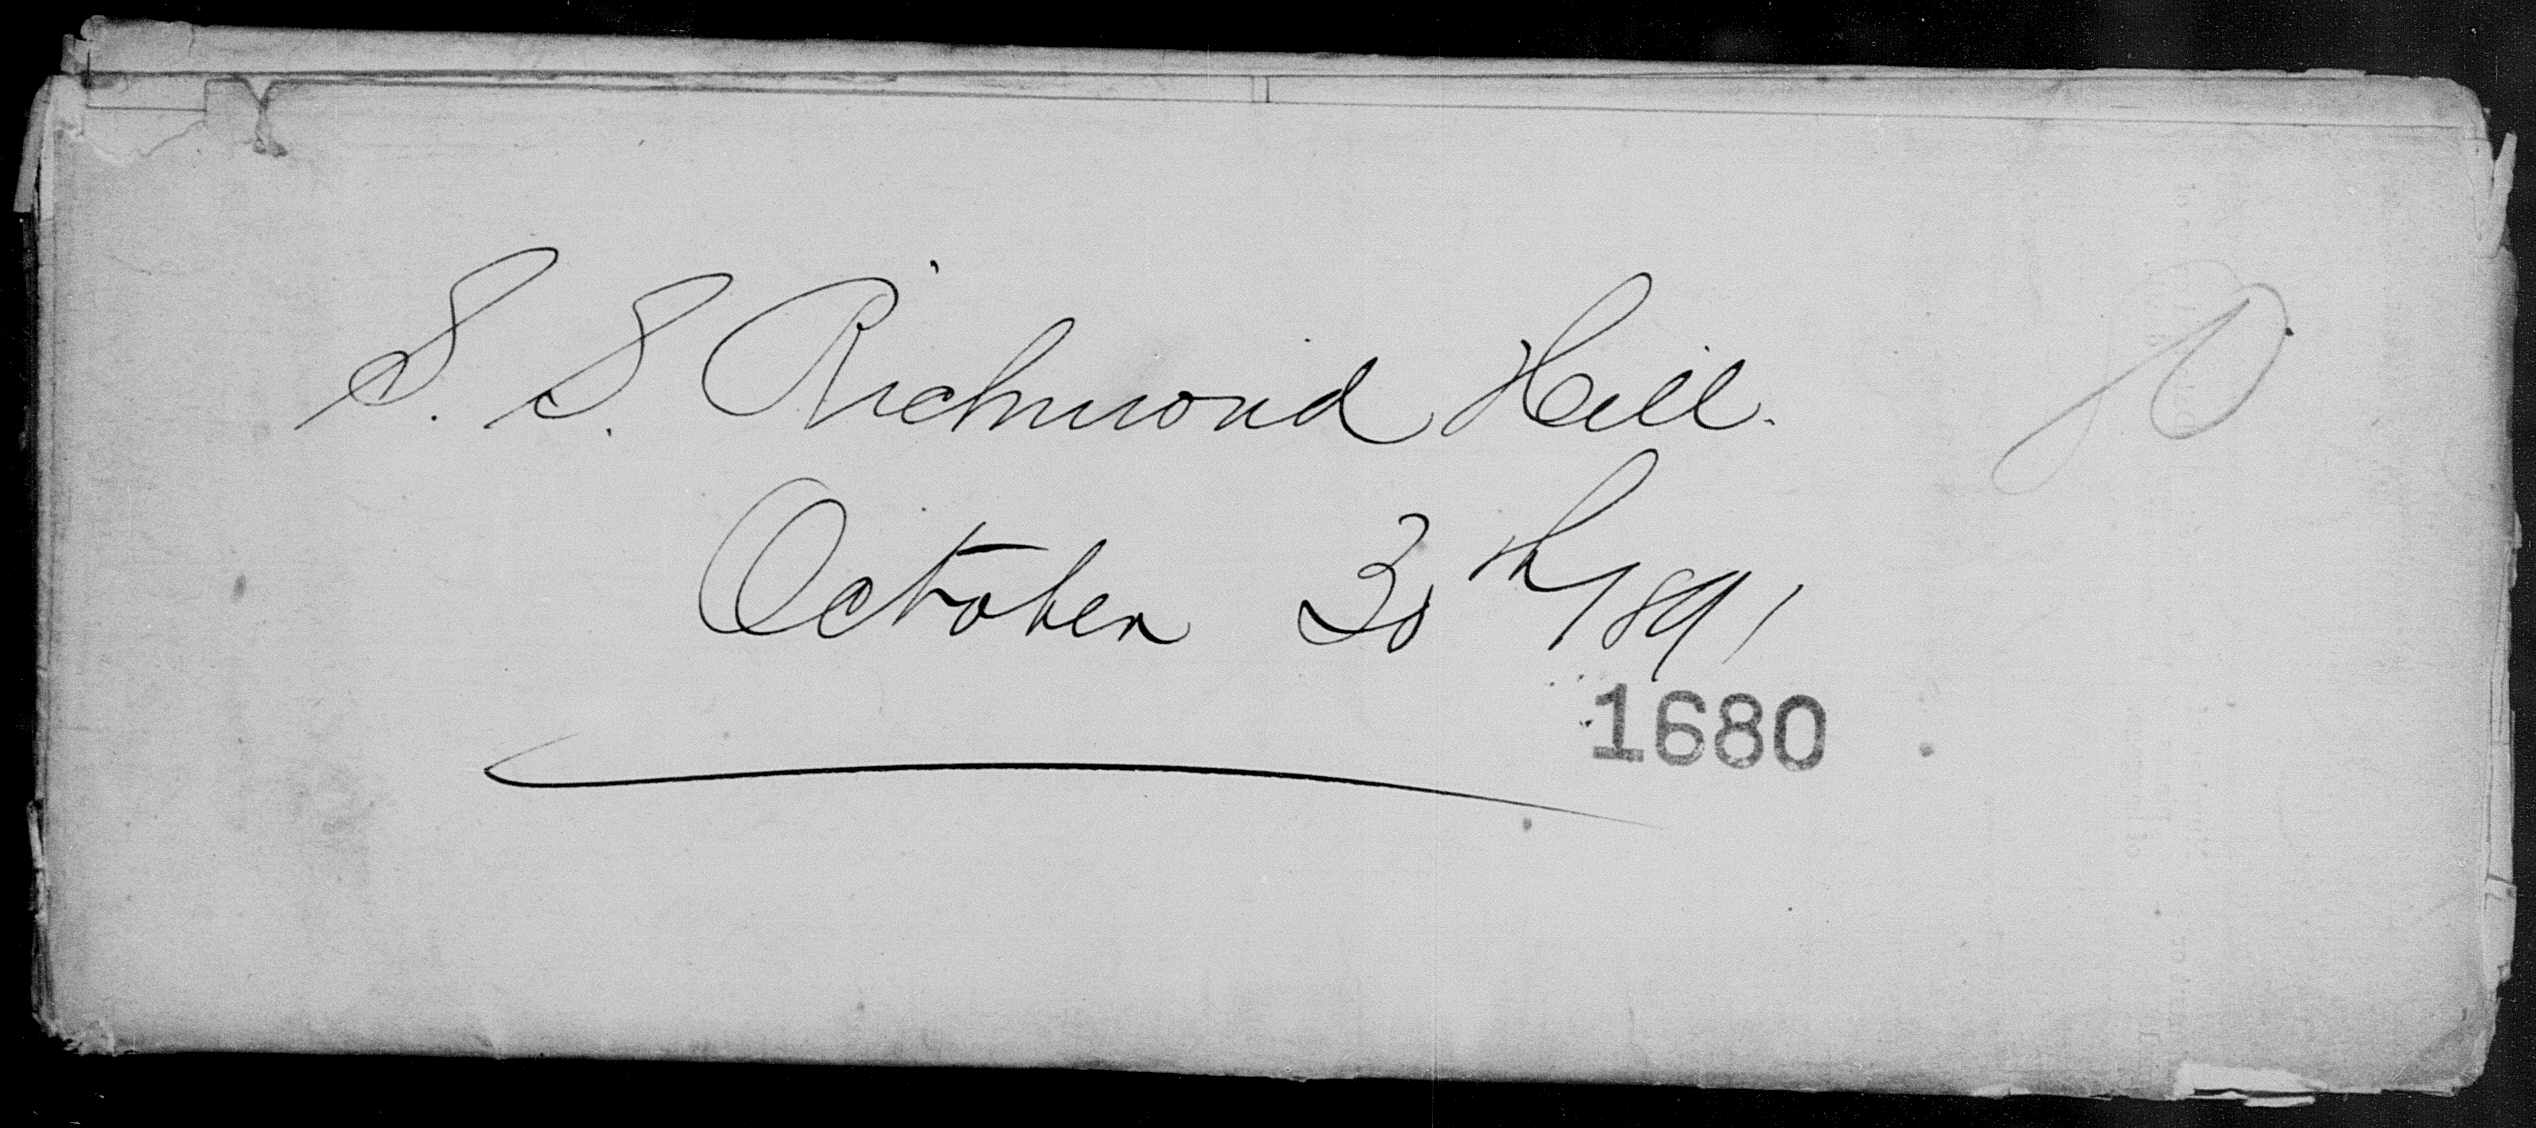 S. S. Richmond Hill.
October 30th 1891
1680